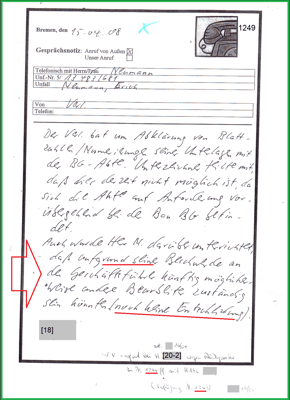 1249
Bremen, den 15.04.08
Gesprächsnotiz: Anruf von Außen
Unser Anruf
Telefonisch mit Herrn/Frau Neumann
Unf.-Nr. S/
Unfall Neumann, Erich
Von Ver.
Telefon:
Der Ver. bat um Abklärung von Blatt-
zahlen/Numerierung seiner Unterlagen mit
der BG-Akte. Unterzeichner teilte mit
daß dies derzeit nicht möglich ist, da
sich die Akte auf Anforderung vor-
übergehend bei der Bau BG befin-
det.
Auch wurde Herr N. darüber unterrichtet
daß aufgrund seiner Beschwerde an
die Geschäftsführer künftig möglicher-
weise andere Bearbeiter zuständig
sein könnten (noch keine Entscheidung).
[18]
[20-2]